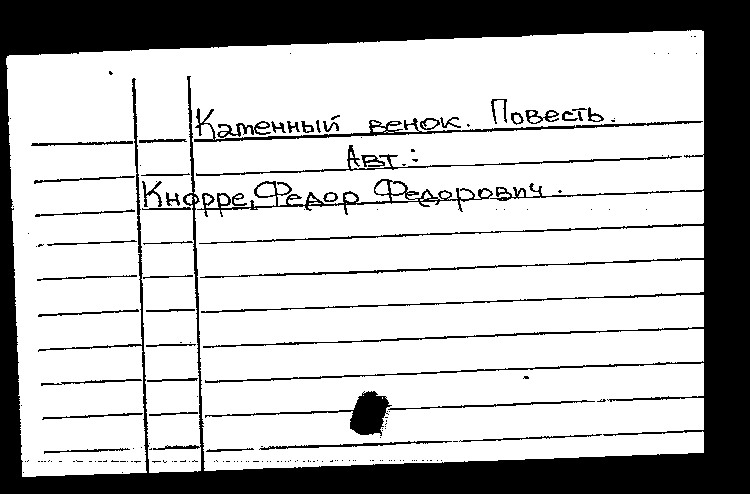 Каменный венок. Повесть.
Авт.:
Кнорре, Федор Федорович.